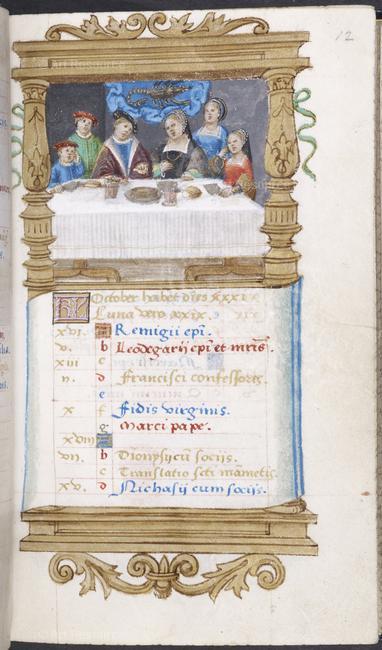 12
October habet dies xxxi
Luna vero xxix.
xvi. Remigii epi.
v. b Leodegarii epi et mris.
xiii c
n. d Francisci confessoris.
e
x f Fidis virginis.
g Marci pape.
xviii
vii. b Dionysii cum sociis.
c Translatio scti
xv. d Nichasii cum sociis.